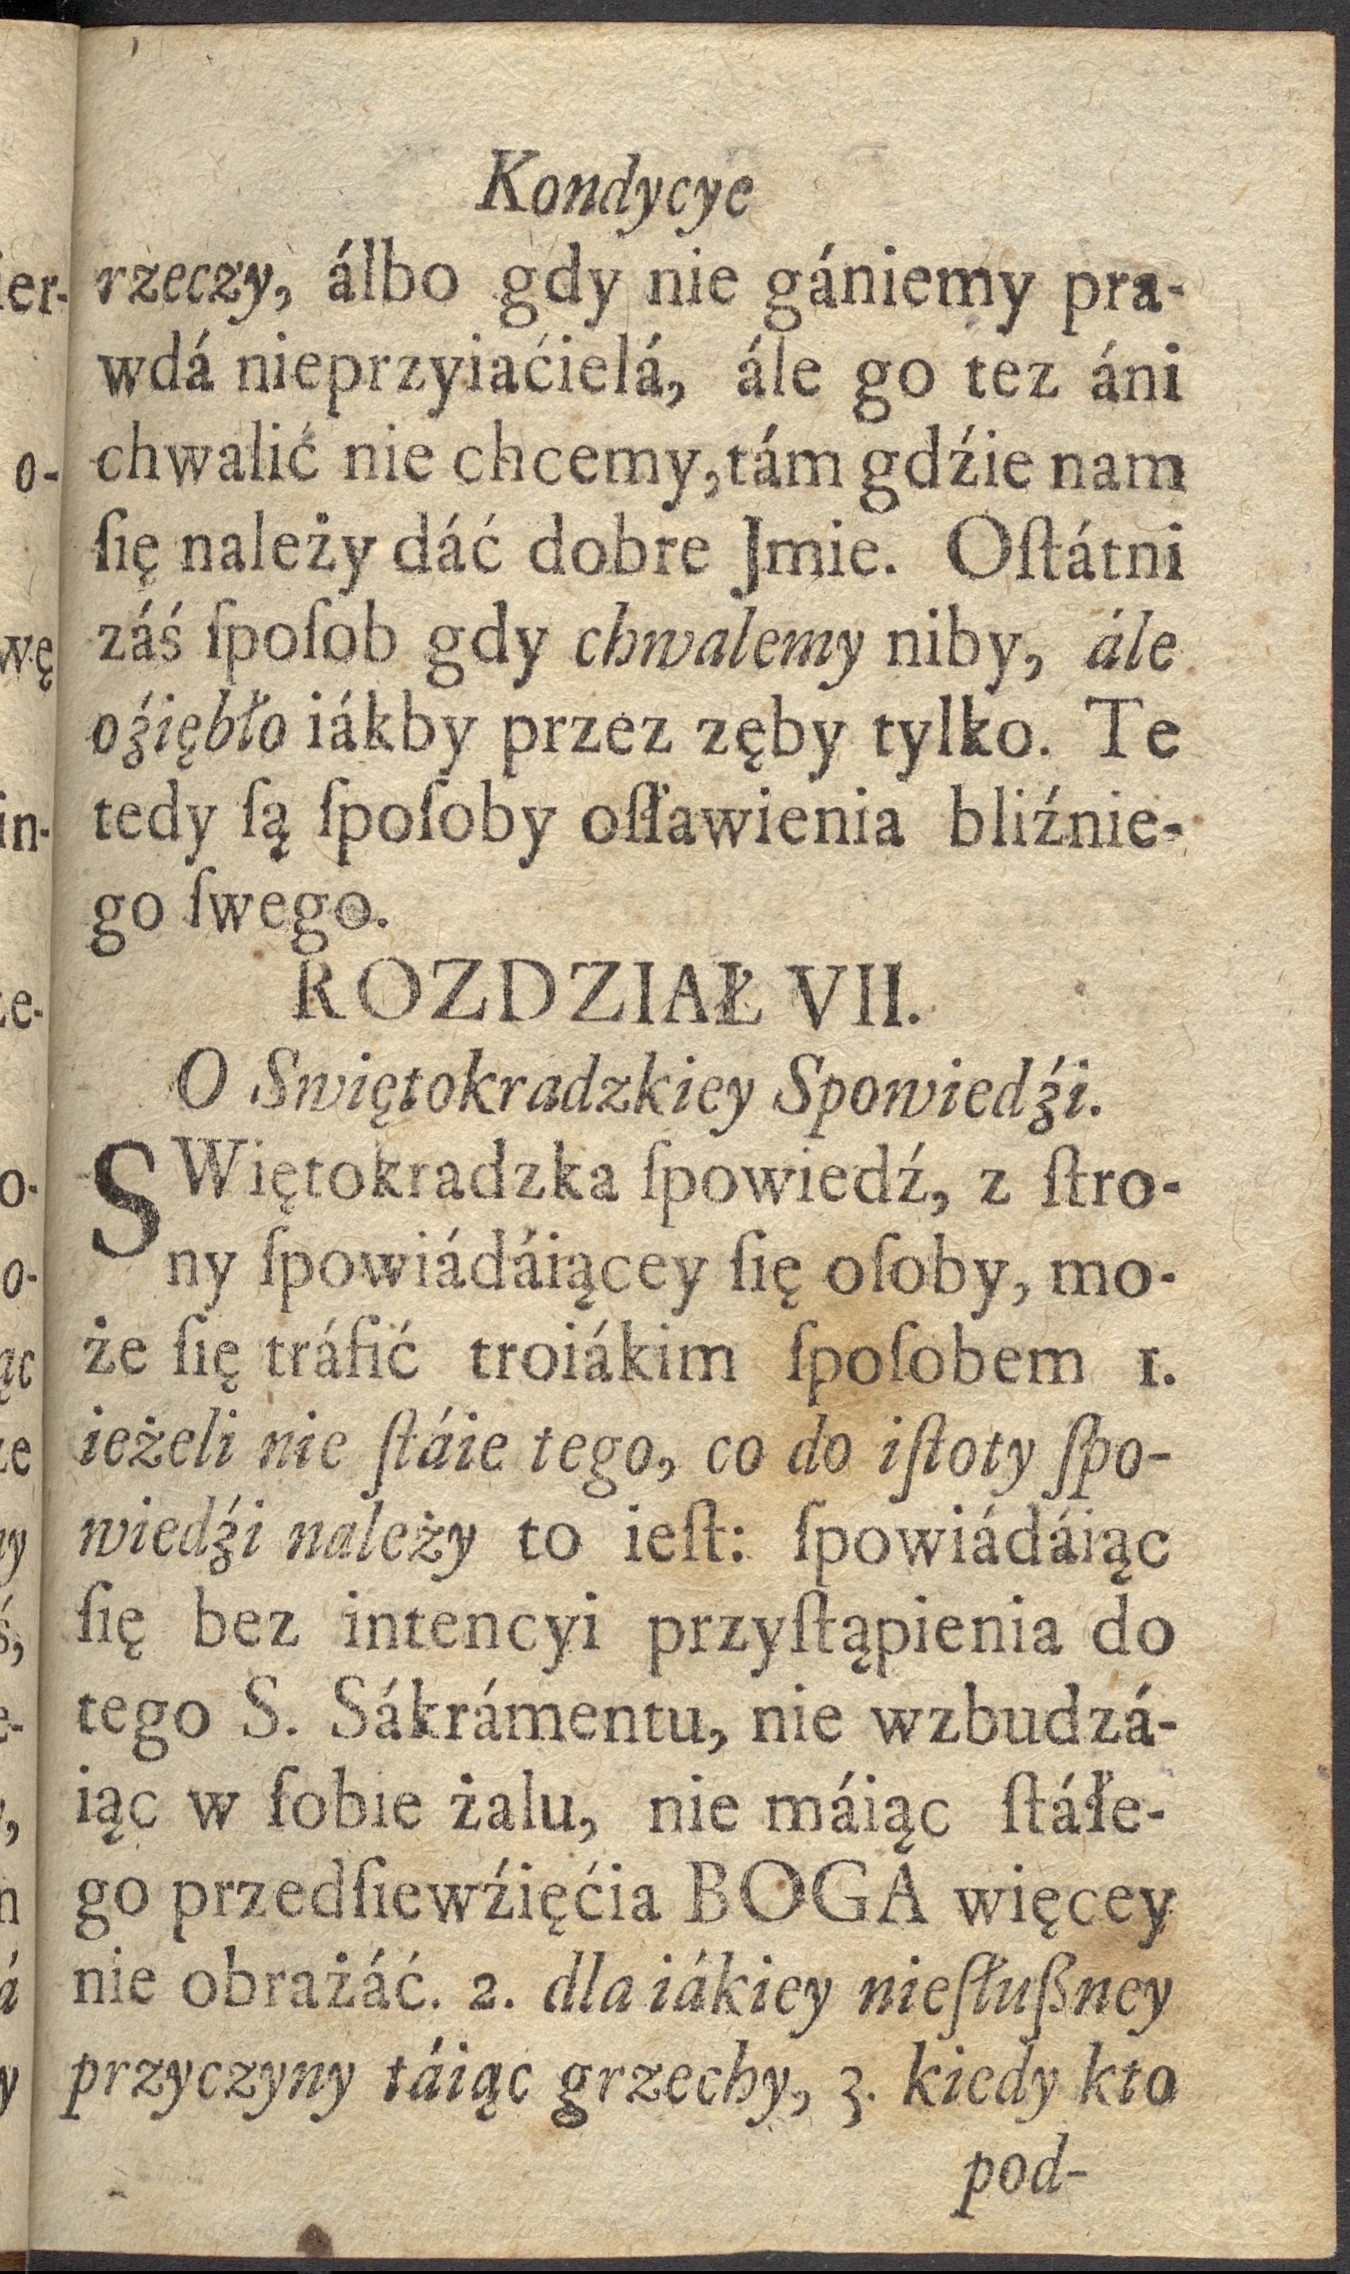 Kondycye
rzeczy, álbo gdy nie gániemy pra-
wdá nieprzyiaćielá, ále go tez áni
chwalić nie chcemy, tám gdźie nam
ſię należy dáć dobre Jmie. Oſtátni
záś ſpoſob gdy chwalemy niby, ále
oźiębło iákby przez zęby tylko. Te
tedy ſą ſpoſoby oſławienia bliźnie-
go ſwego.
ROZDZIAŁ VII.
O Swiętokradzkiey Spowiedźi.
SWiętokradzka ſpowiedź, z ſtro-
ny ſpowiádáiącey ſię oſoby, mo-
że ſię tráfić troiákim ſpoſobem 1.
ieżeli nie ſtáie tego, co do iſtoty ſpo-
wiedźi należy to ieſt: ſpowiádáiąc
ſię bez intencyi przyſtąpienia do
tego S. Sákrámentu, nie wzbudzá-
iąc w ſobie żalu, nie máiąc ſtáłe-
go przedſiewźięćia BOGA więcey
nie obrażáć. 2. dla iákiey nieſłußney
przyczyny táiąc grzechy, 3. kiedy kto
pod-